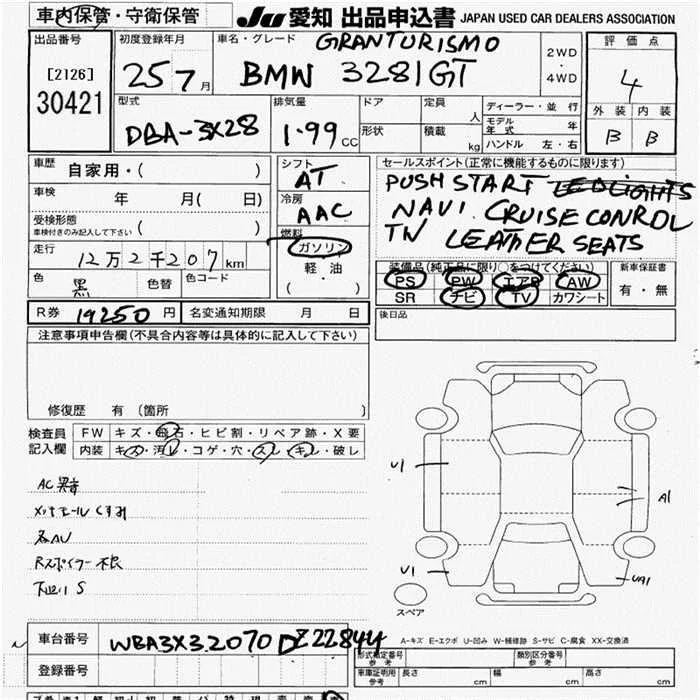 車内保管・守衛保管
JU 愛知 出品申込書 JAPAN USED CAR DEALERS ASSOCIATION
出品番号
[2126]
30421
初度登録年月
25 7月
車名・グレード
GRANTURISMO
BMW 328IGT
2WD
・
4WD
評価点
4
外装 内装
B B
型式
DBA-3X28
排気量
1.99 CC
ドア
形状
定員 人
積載 kg
ディーラー・並行
モデル年式 年
ハンドル 左・右
車歴 自家用・( )
車検 年 月( 日)
受検形態
車検付きのみ記入して下さい ( )
走行 12万2千207km
色 黒 色替 色コード
シフト
AT
冷房
AAC
燃料
ガソリン
軽・油
( ・ )
セールスポイント(正常に機能するものに限ります)
PUSH START LEDLIGHTS
NAVI. CRUISE CONROL
TV LEATHER SEATS
装備品(純正品に限り○をつけてください)
PS PW エアB AW
SR ナビ TV カワシート
新車保証書
有・無
R券 19250円 名変通知期限 月 日
後日品
注意事項申告欄(不具合内容等は具体的に記入して下さい)
修復歴 有 (箇所 )
検査員
記入欄
FW キズ・飛石・ヒビ割・リペア跡・X要
内装 キズ・汚レ・コゲ・穴・スレ・キレ・破レ
AC異音
メッキモールくすみ
各AU
Rスポイラー不良
下廻りS
U1
A1
U1
UA1
スペア
A-キズ E-エクボ U-凹み W-補修跡 S-サビ C-腐食 XX-交換済
車台番号 WBA3X3.2070DZ22844
登録番号
型式指定番号
参考
類別区分番号
参考
車庫証明用
参考
長さ cm 幅 cm 高さ cm